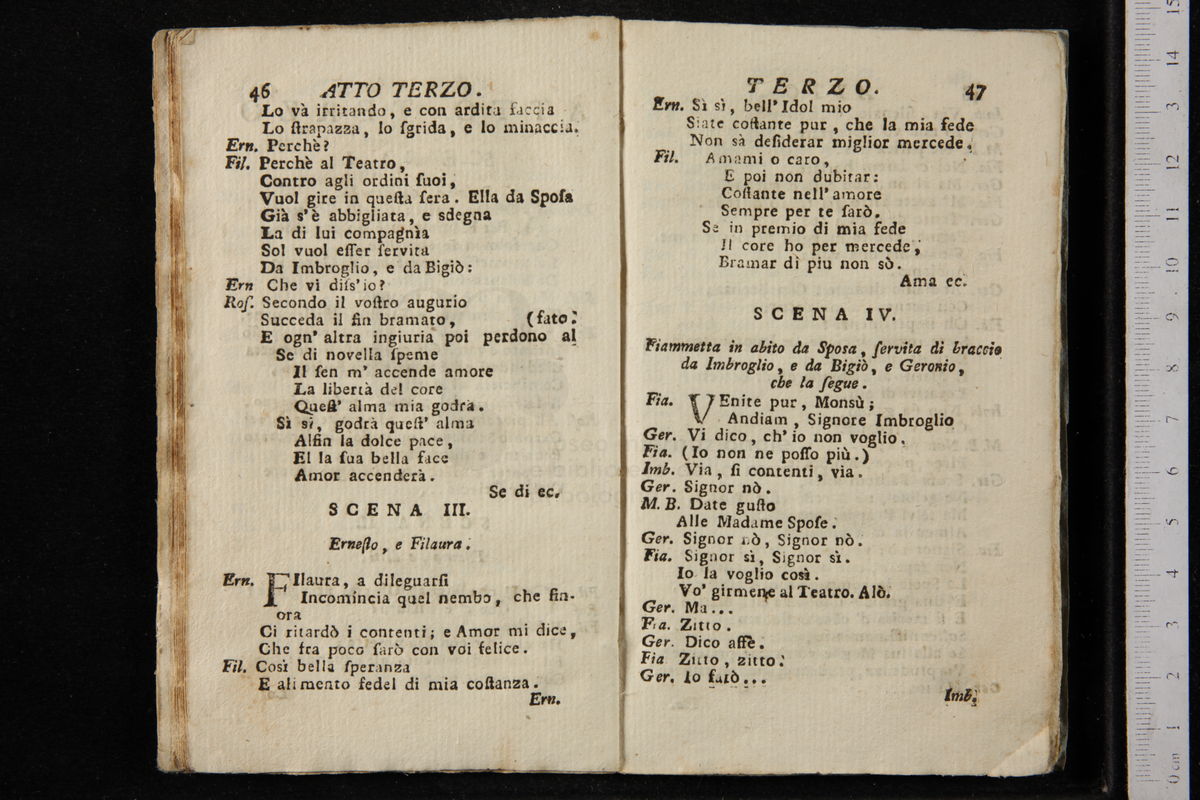 46 ATTO TERZO.
Lo và irritando, e con ardita faccia
Lo ſtrapazza, lo ſgrida, e lo minaccia.
Ern. Perchè?
Fil. Perchè al Teatro,
Contro agli ordini ſuoi,
Vuol gire in queſta ſera. Ella da Spoſa
Già s'è abbigliata, e sdegna
La di lui compagnìa
Sol vuol eſſer ſervita
Da Imbroglio, e da Bigiò:
Ern Che vi diſs'io?
Roſ. Secondo il voſtro augurio
Succeda il fin bramato, (ſato:
E ogn' altra ingiuria poi perdono al
Se di novella ſpeme
Il ſen m' accende amore
La libertà del core
Queſt' alma mia godrà.
Sì sì, godrà queſt' alma
Alfin la dolce pace,
El la ſua bella face
Amor accenderà.
Se di ec.
SCENA III.
Erneſto, e Filaura.
Ern. FIlaura, a dileguarſi
Incomincia quel nembo, che fin-
ora
Ci ritardò i contenti; e Amor mi dice,
Che fra poco ſarò con voi felice.
Fil. Così bella ſperanza
E alimento fedel di mia coſtanza.
Ern.
TERZO. 47
Ern. Sì sì, bell' Idol mio
Siate coſtante pur, che la mia fede
Non sà deſiderar miglior mercede.
Fil. Amami o caro,
E poi non dubitar:
Coſtante nell' amore
Sempre per te ſarò.
Se in premio di mia fede
Il core ho per mercede,
Bramar dì piu non sò.
Ama ec.
SCENA IV.
Fiammetta in abito da Sposa, ſervita di braccio
da Imbroglio, e da Bigiò, e Geronio,
che la ſegue.
Fia. VEnite pur, Monsù;
Andiam, Signore Imbroglio
Ger. Vi dico, ch' io non voglio.
Fia. (Io non ne poſſo più.)
Imb. Via, ſi contenti, via.
Ger. Signor nò.
M. B. Date guſto
Alle Madame Spoſe.
Ger. Signor nò, Signor nò.
Fia. Signor sì, Signor sì.
Io la voglio così.
Vo' girmene al Teatro. Alò.
Ger. Ma...
Fia. Zitto.
Ger. Dico affè.
Fia Zitto, zitto.
Ger. Io farò...
Imb.